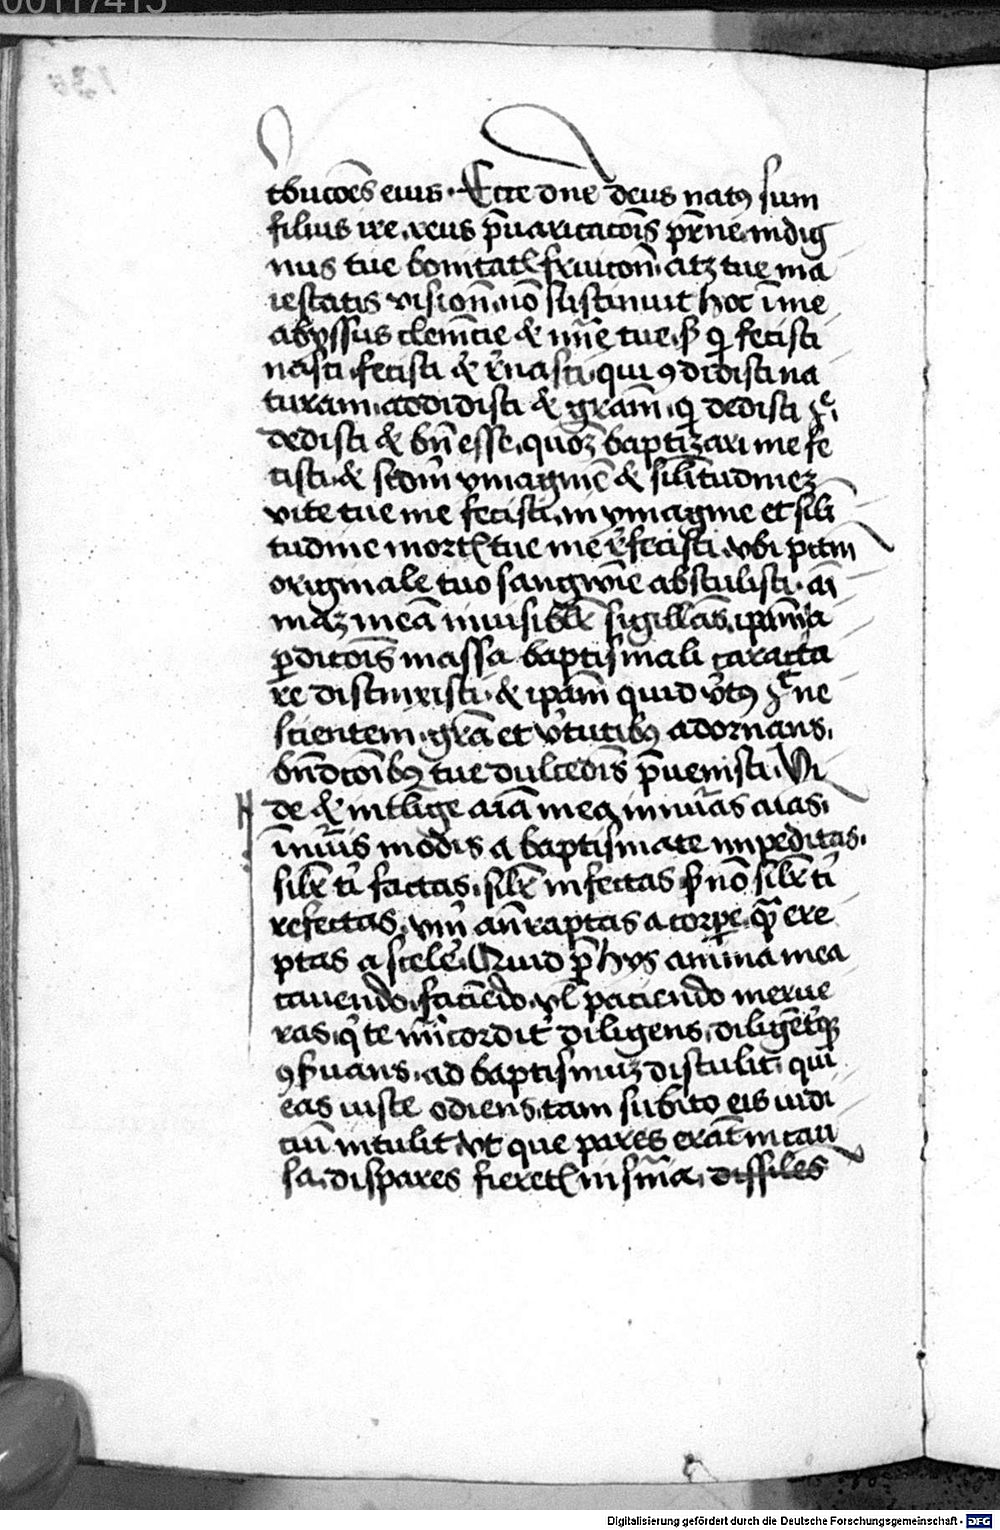 00117415
tbuco̅es eius. Ecce dne deus natꝯ sum
filius ire, reus p̅uaricaco̅is p̅rne, indig
nus tue bonitatꝭ fruico̅ni atꝫ tue ma
iestatis vision̅i, no̅ sustinuit hoc i̅me
abyssus cleme̅cie & mi̅e tue, sꝫ q̇ fecisti
fecisti & qui ꝯdidisti na
turam, addidisti & gra̅m, q̇ dedisti
dedisti & bn̅ esse, quoꝫ baptizari me fe
cisti & scd̅m ymagine̅ & silitudineꝫ
vite tue me fecisti, in ymagine et sili
tudine mortꝭ tue me refecisti, vbi pct̅m
originale tuo sangwi̅e abstulisti. ai̅
maꝫ mea̅ inuisibilr̅ sigilla̅s, ip̅am a
ꝑdico̅is massa baptismali caracte
re distinxisti & ip̅am quid v̓tꝯ ne
scientem, gra̅ et v̓tutibꝯ adornans,
bn̅dco̅ibꝯ tue dulcedi̅s p̅uenisti. Vi
de & intllige ai̅a mea, innu̅as ai̅as,
i̅nu̅is modis a baptismate impeditas.
silr̅ ti̓ factas, silr̅ infectas sꝫ no̅ silr̅ ti̓
refectas, an̅ raptas a corpe, qͣ ere
ptas a scele̓. Quid p̅ hys anima mea
cauendo, facie̅do, vl̓ paciendo merue
ras, q̓ te mi̅cordit̓ diligens, diligent̓qꝫ
ꝯs̓uans, ad baptismuꝫ distulit, qui
eas iuste odiens, tam subito eis iudi
ciu̅ intulit, vt que pares era̅t in cau
sa, dispares fieretꝭ in sn̅ia, dissiles
Digitalisierung gefördert durch die Deutsche Forschungsgemeinschaft - DFG